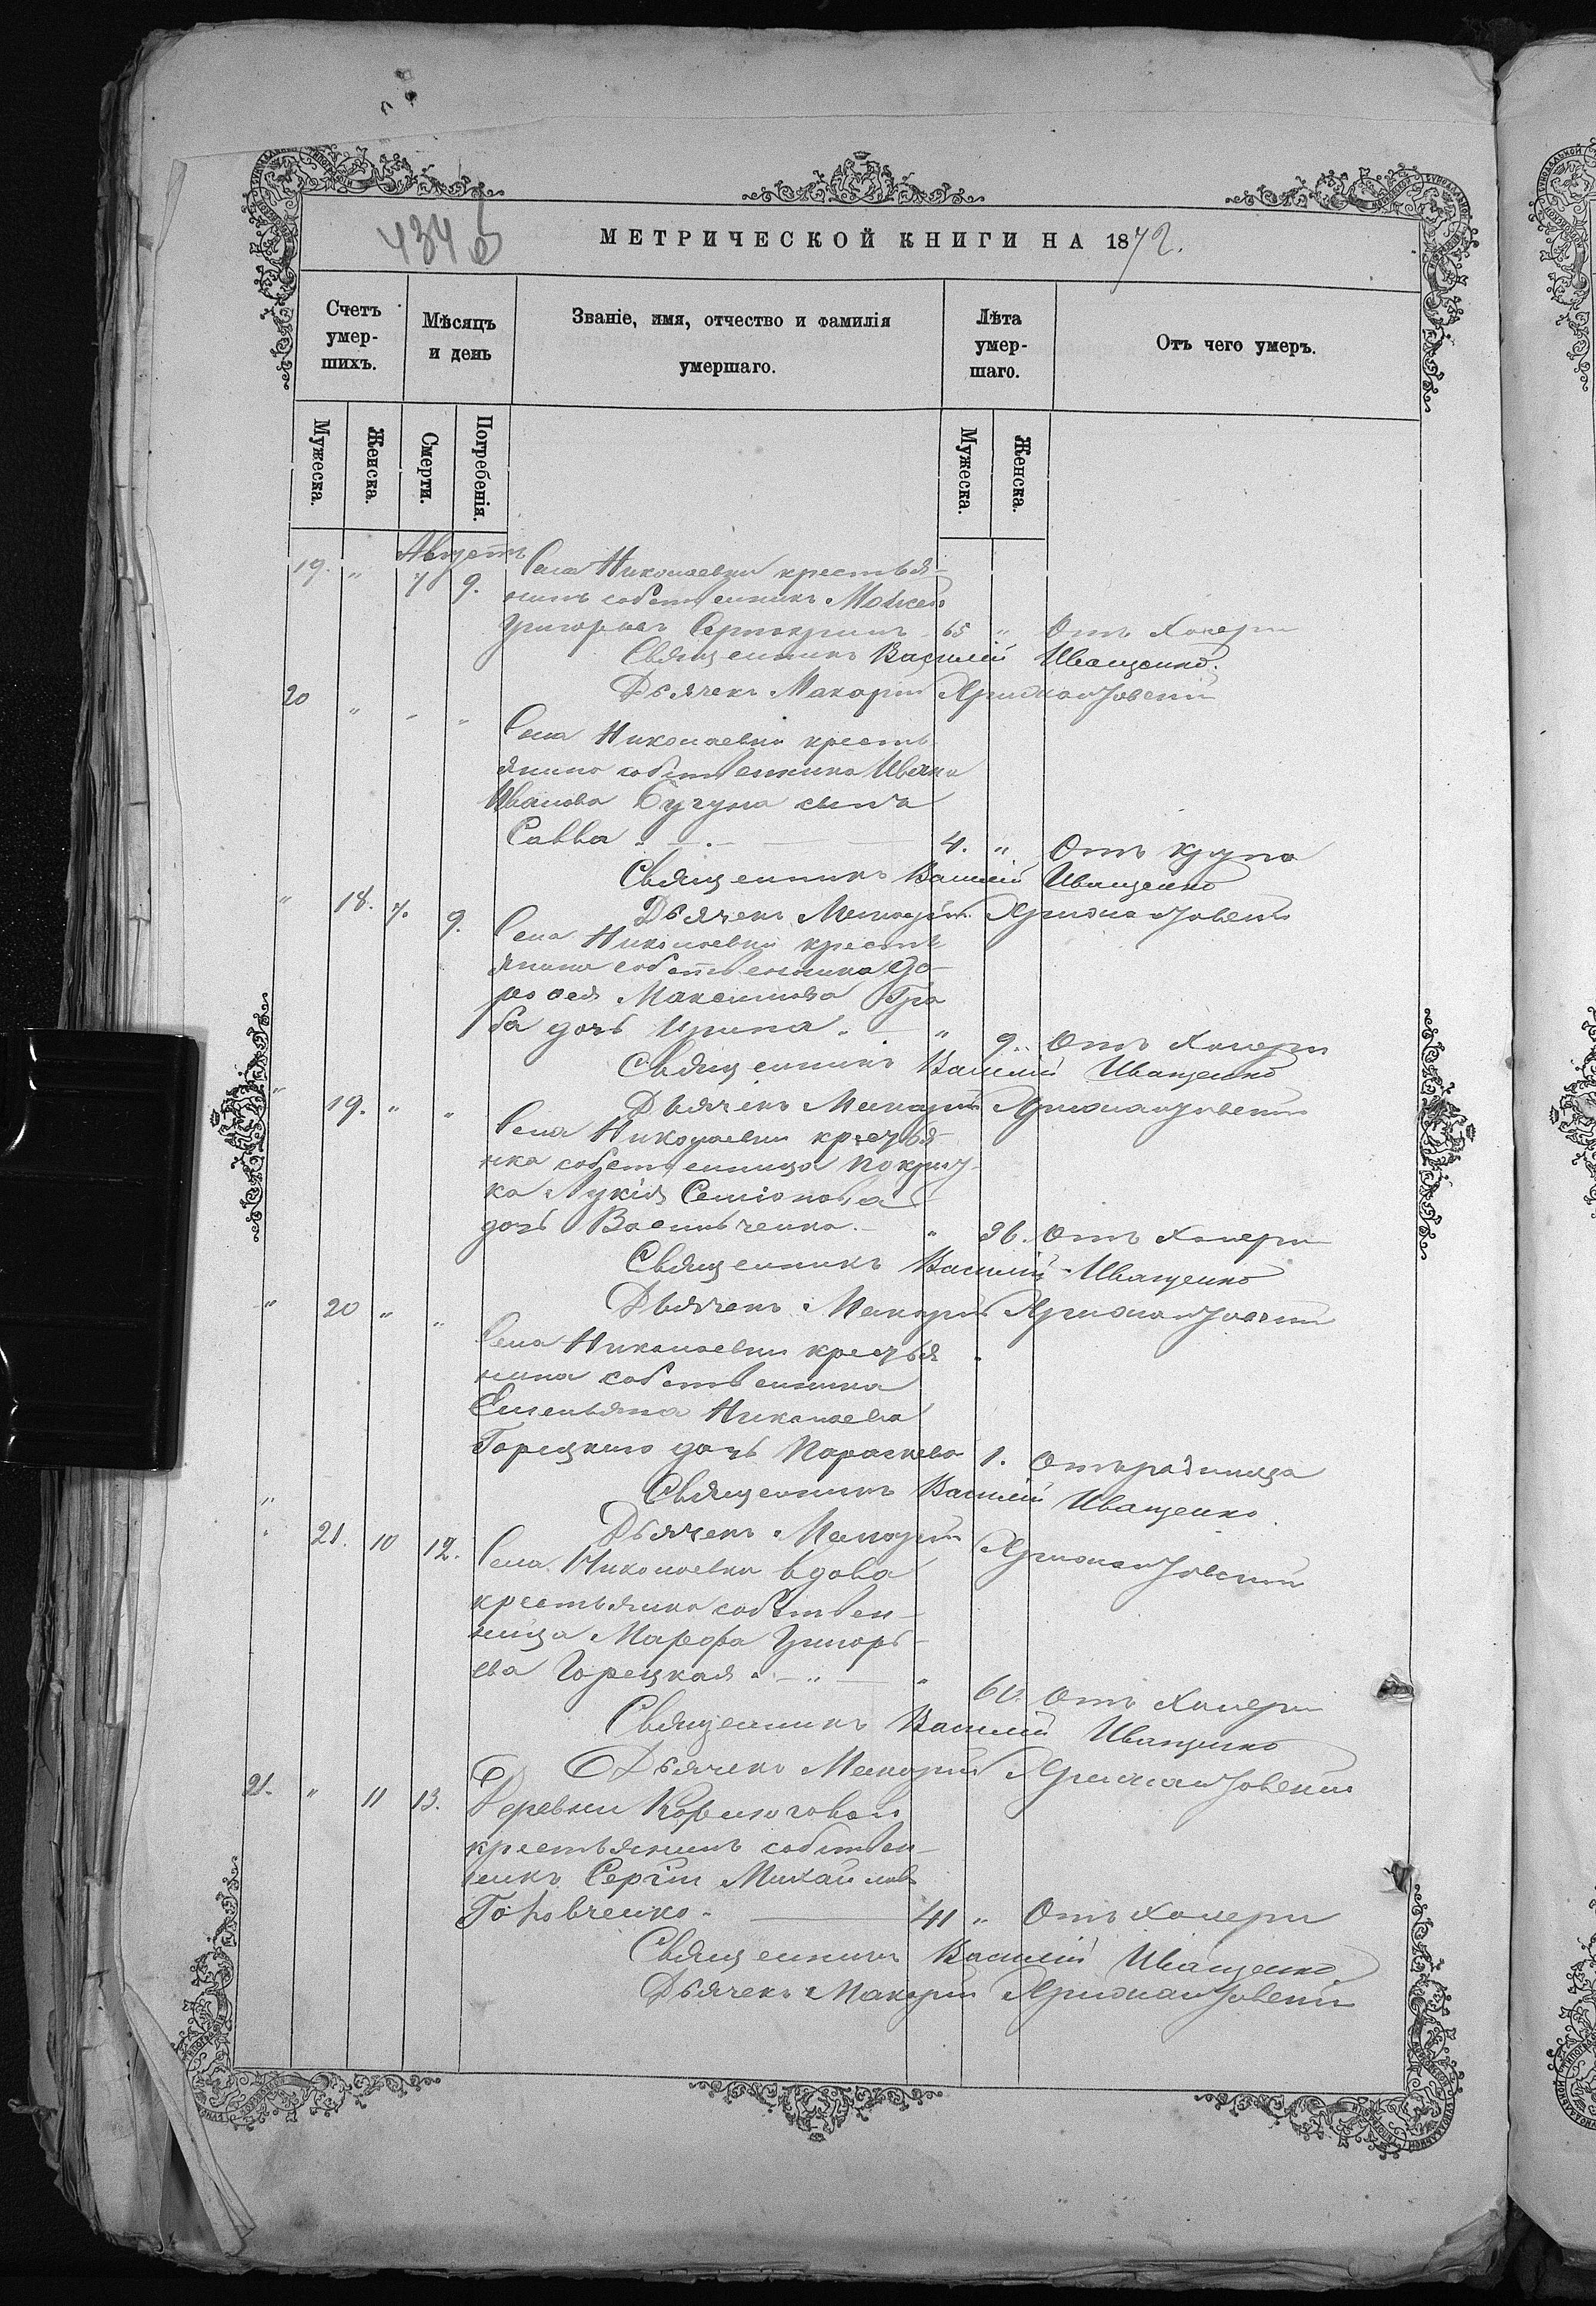 434 об
МЕТРИЧЕСКОЙ КНИГИ НА 1872.
Счетъ умер-шихъ.
Мѣсяцъ и день
Званіе, имя, отчество и фамилія умершаго.
Лѣта умер-шаго.
Отъ чего умеръ.
Мужеска.
Женска.
Смерти.
Погребенія.
Мужеска.
Женска.
Августъ
19. " 7 9. Села Николаевки крестья-
нинъ собственникъ Мойсей
Григорьевъ 65 " Отъ холеры
Священникъ Василій Иващенко.
Дьячекъ Макарій
20 " " "
Села Николаевки кресть
янина собственника Ивана
Иванова Бугуна сынъ
Савва 4. " Отъ крупа
Священникъ Василій Иващенко
Дьячекъ Макарій
" 18. 7. 9. Села Николаевки кресть
янина собственника До-
рофея Максимова Гра
ба дочь Ирина " 9. Отъ холеры
Священникъ Василій Иващенко
Дьячекъ Макарій
" 19. " " Села Николаевки крестья-
нка собственница
ка Лукія Семіонова
дочь Васильченко " 36. Отъ холеры
Священникъ Василій Иващенко
Дьячекъ Макарій
" 20 " " Села Николаевки крестья
нина собственника
Емельяна Николаева
Горецкого дочь Параскева 1. Отъ родимца
Священникъ Василій Иващенко
Дьячекъ Макарій
" 21. 10 12. Села Николаевки вдова
крестьянка собствен-
ница Марфа Григорь-
ева Горецкая " 60. Отъ холеры
Священникъ Василій Иващенко
Дьячекъ Макарій
21. " 11 13. Деревни
крестьянинъ собствен-
никъ Сергій Михайловъ
Головченко 41 " Отъ холеры
Священникъ Василій Иващенко
Дьячекъ Макарій